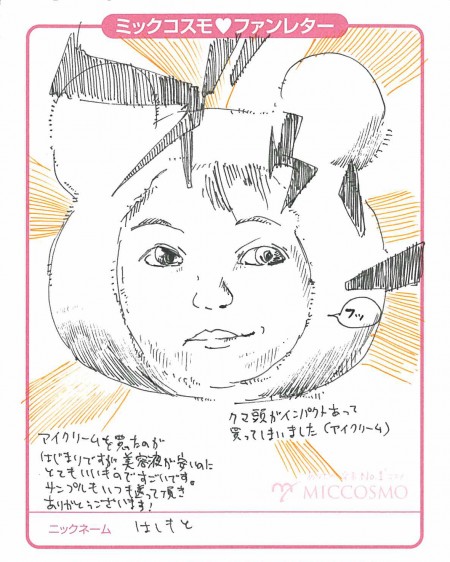 ミックコスモ♥ファンレター
フッ
クマ頭がインパクトあって
買ってしまいました(アイクリーム)
アイクリームを買ったのが
はじまりですが美容液が安いのに
とてもいいものですごいです。
サンプルもいつも送って頂き
ありがとうございます!
No.1
MICCOSMO
ニックネーム はしもと